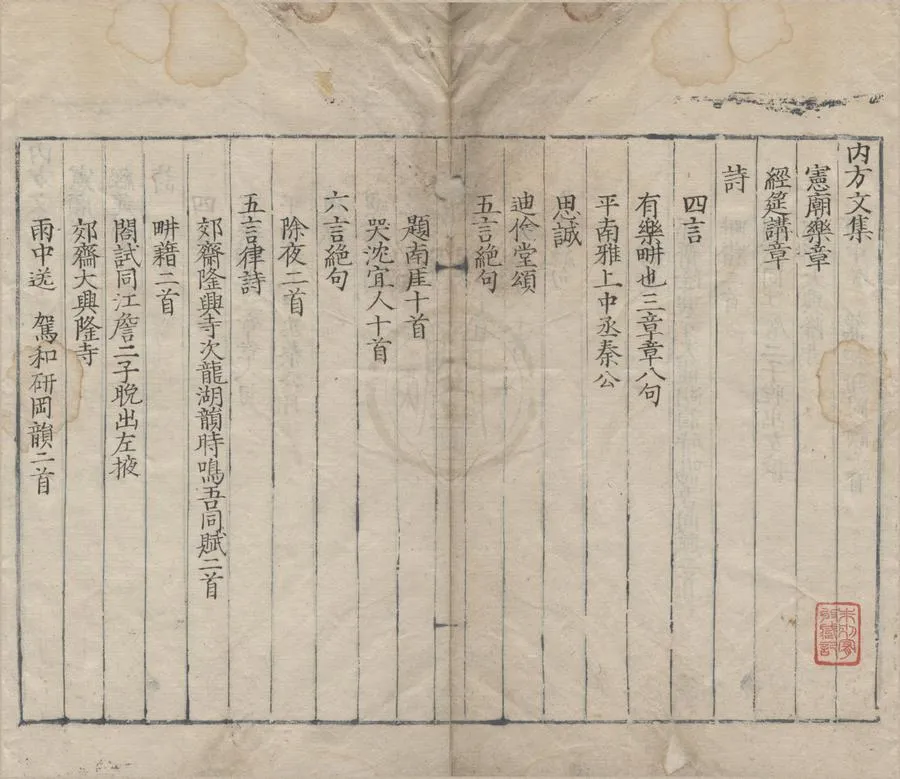 内方文集
憲廟樂章
經筵講章
詩
四言
有樂畊也三章章八句
平南雅上中丞秦公
思誠
迪倫堂頌
五言絶句
題南厓十首
哭沈宜人十首
六言絶句
除夜二首
五言律詩
郊齋隆興寺次龍湖韻時鳴吾同賦二首
畊籍二首
閣試同江詹二子晚出左掖
郊齋大興隆寺
雨中送　駕和研岡韻二首